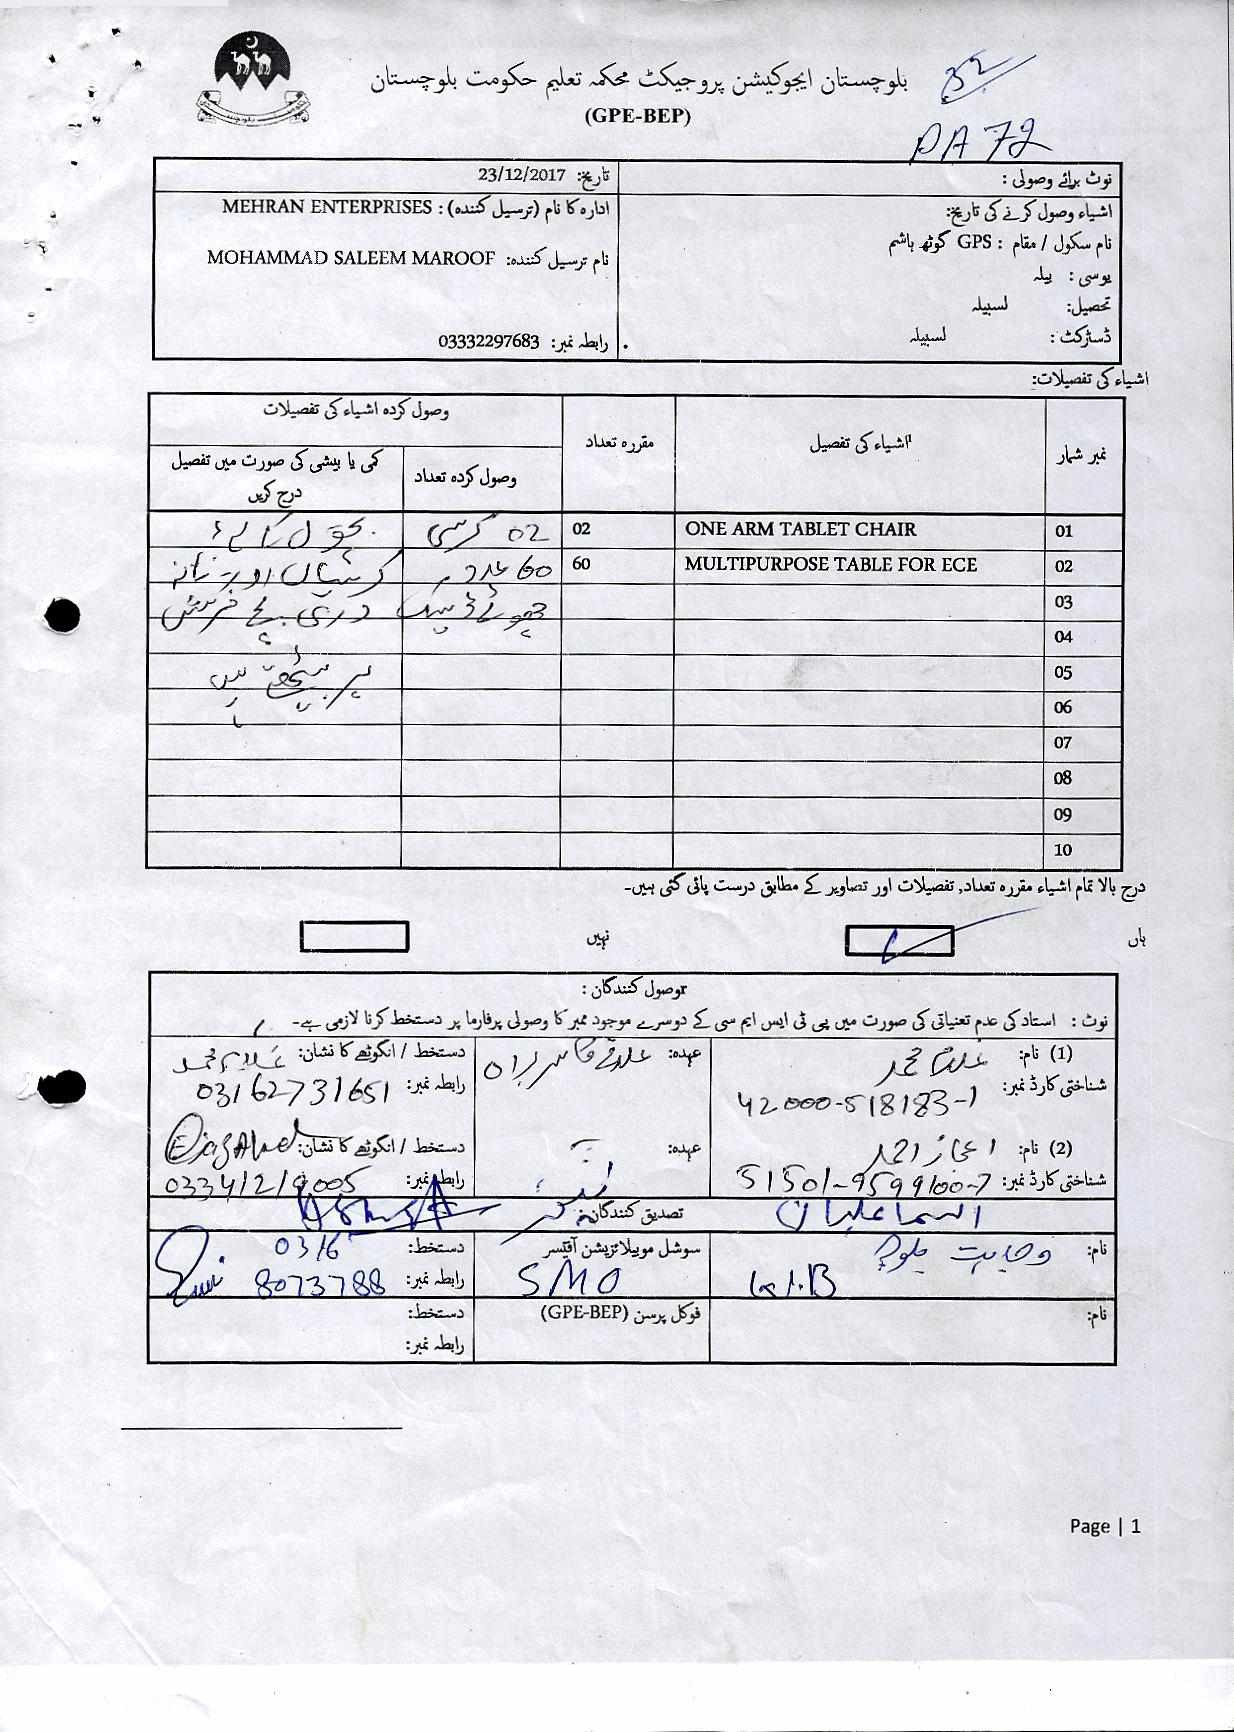 بلوچستان ایجوکیشن پروجیکٹ محکمہ تعلیم حکومت بلوچستان
32
(GPE-BEP)
PA 72
نوٹ برائے وصولی :
تاریخ: 23/12/2017
اشیاء وصول کرنے کی تاریخ:
ادارہ کا نام (ترسیل کنندہ) : MEHRAN ENTERPRISES
نام سکول / مقام : GPS گوٹھ ہاشم
نام ترسیل کنندہ: MOHAMMAD SALEEM MAROOF
یوسی : بیلہ
تحصیل: لسبیلہ
ڈسٹرکٹ : لسبیلہ
رابطہ نمبر: 03332297683
اشیاء کی تفصیلات:
نمبر شمار
اشیاء کی تفصیل
مقررہ تعداد
وصول کردہ اشیاء کی تفصیلات
وصول کردہ تعداد
کمی یا بیشی کی صورت میں تفصیل درج کریں
01 ONE ARM TABLET CHAIR 02 02 کرسی
02 MULTIPURPOSE TABLE FOR ECE 60 60 عدد
03 چھوٹے ڈیسک
04
05 پر بیٹھتے ہیں
06
07
08
09
10
درج بالا تمام اشیاء مقررہ تعداد, تفصیلات اور تصاویر کے مطابق درست پائی گئی ہیں۔
ہاں
نہیں
وصول کنندگان :
نوٹ : استاد کی عدم تعنیاتی کی صورت میں پی ٹی ایس ایم سی کے دوسرے موجود ممبر کا وصولی پرفارما پر دستخط کرنا لازمی ہے۔
(1) نام: غلام محمد
عہدہ:
دستخط / انگوٹھے کا نشان: غلام محمد
شناختی کارڈ نمبر: 42000-518183-1
رابطہ نمبر: 03162731651
(2) نام: اعجاز احمد
عہدہ:
دستخط / انگوٹھے کا نشان: Ejaz Ahmed
شناختی کارڈ نمبر: 51501-9599100-7
رابطہ نمبر: 03341219005
تصدیق کنندگان:
نام:
سوشل موبیلائزیشن آفیسر
SMO
دستخط:
رابطہ نمبر: 0316 8073788
نام:
فوکل پرسن (GPE-BEP)
دستخط:
رابطہ نمبر:
Page | 1